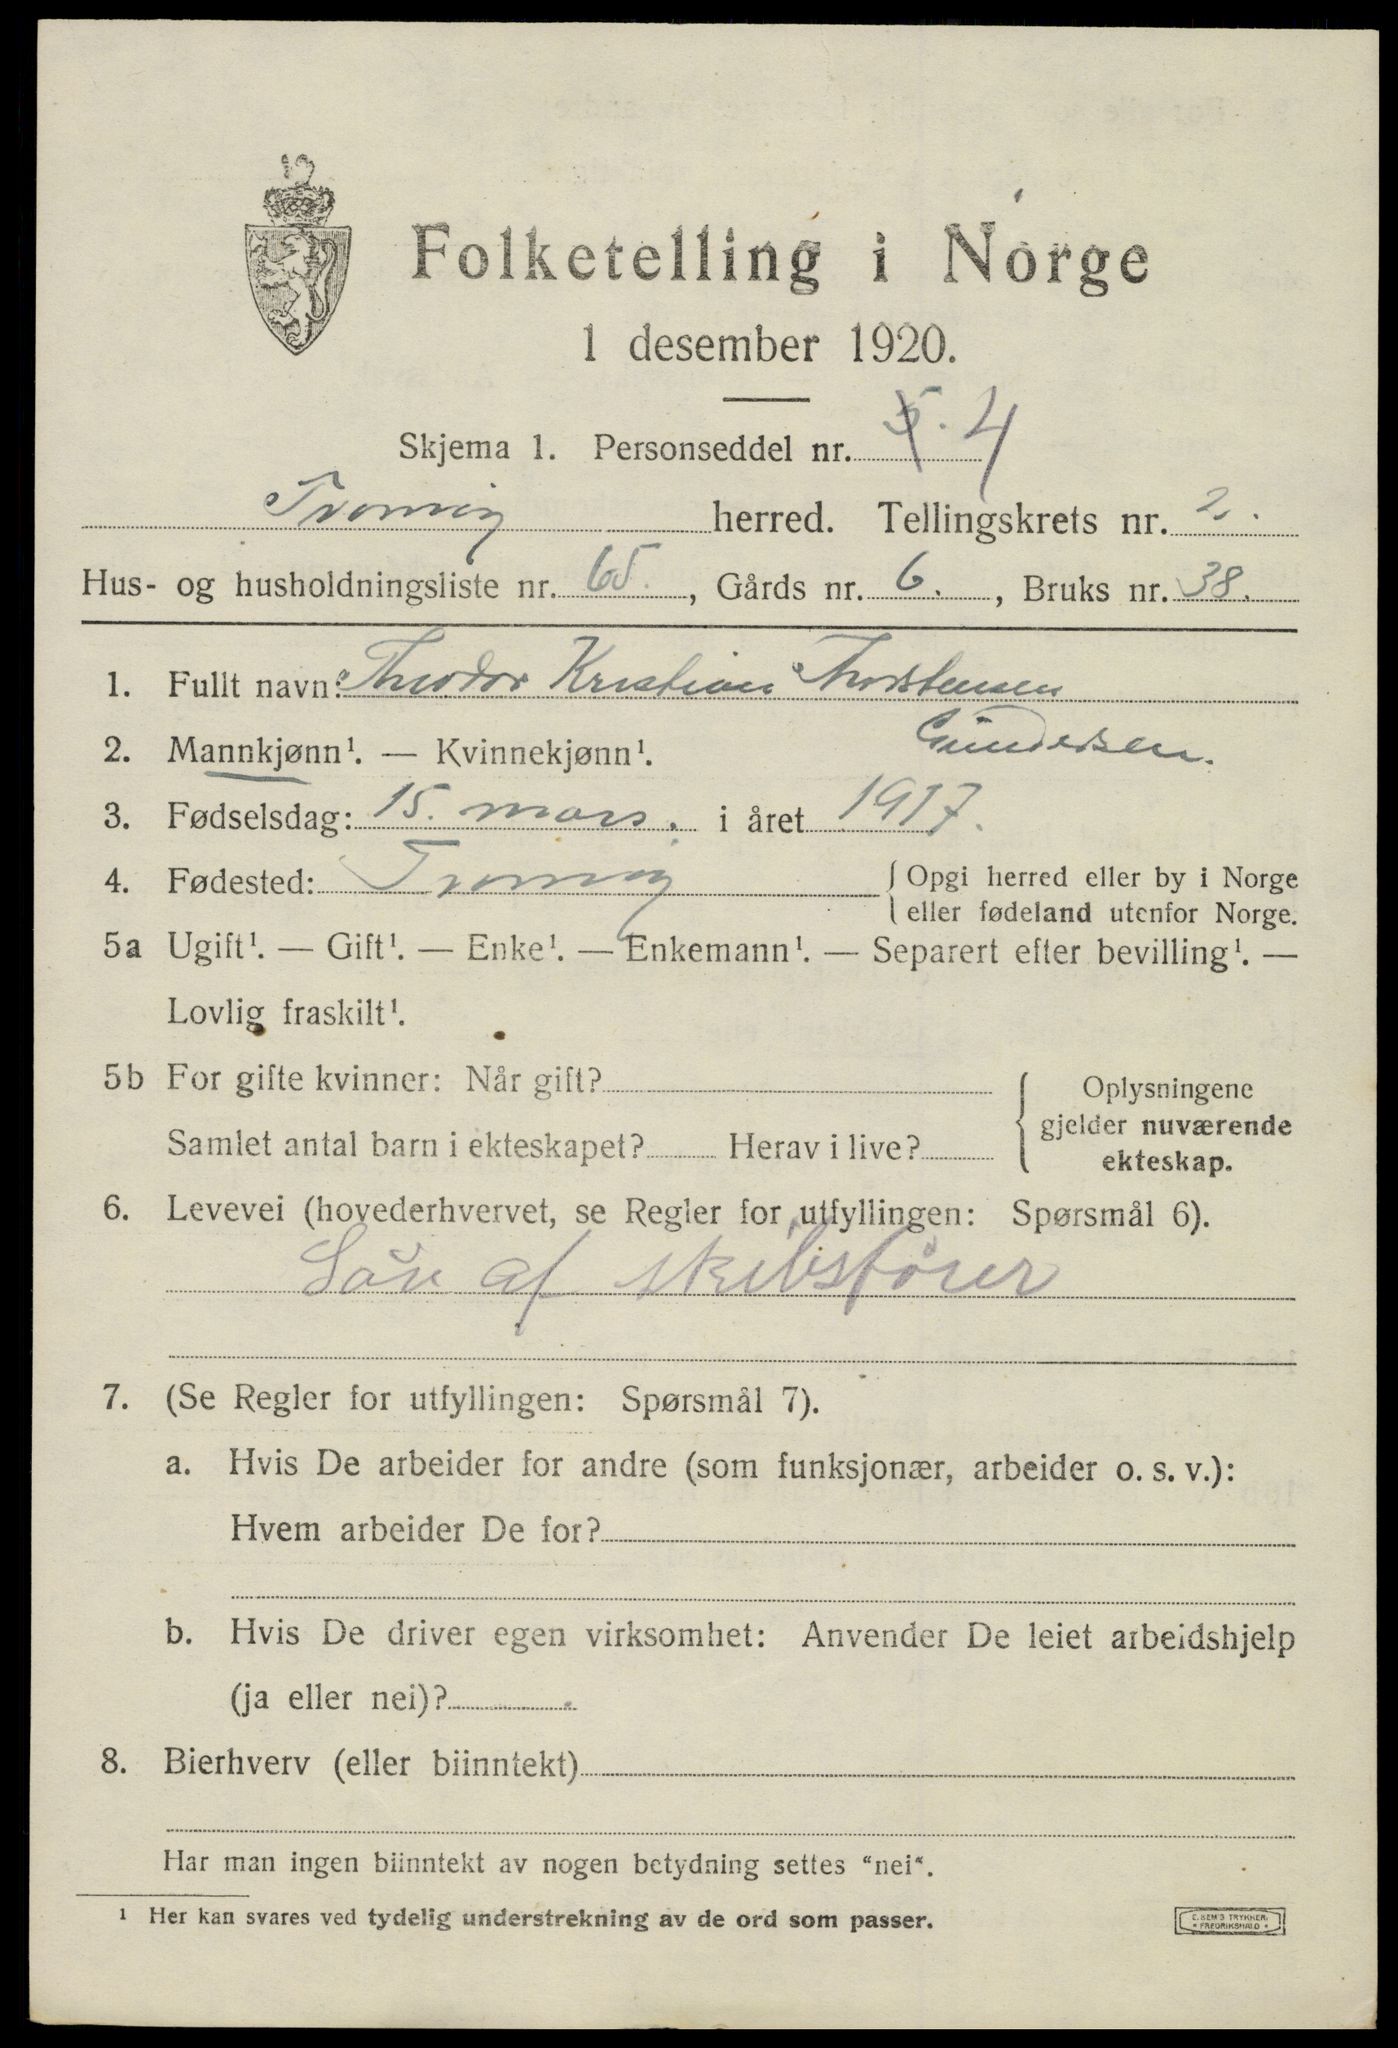 Folketelling i Norge
1 desember 1920.
Skjema 1. Personseddel nr. 5. 4
Tromøy herred. Tellingskrets nr. 2.
Hus- og husholdningsliste nr. 65. , Gårds nr. 6. , Bruks nr. 38.
1. Fullt navn: Theodor Kristian Thorstensen
Gundersen.
2. Mannkjønn¹. — Kvinnekjønn¹.
3. Fødselsdag: 15. mars. i året 1917.
4. Fødested: Tromøy { Opgi herred eller by i Norge
eller fødeland utenfor Norge.
5a Ugift¹. — Gift¹. — Enke¹. — Enkemann¹. — Separert efter bevilling¹. —
Lovlig fraskilt¹.
5b For gifte kvinner: Når gift?
Samlet antal barn i ekteskapet? Herav i live?
{ Oplysningene
gjelder nuværende
ekteskap.
6. Levevei (hovederhvervet, se Regler for utfyllingen: Spørsmål 6).
Søn af skibsfører
7. (Se Regler for utfyllingen: Spørsmål 7).
a. Hvis De arbeider for andre (som funksjonær, arbeider o. s. v.):
Hvem arbeider De for?
b. Hvis De driver egen virksomhet: Anvender De leiet arbeidshjelp
(ja eller nei)?
8. Bierhverv (eller biinntekt)
Har man ingen biinntekt av nogen betydning settes “nei“.
¹ Her kan svares ved tydelig understrekning av de ord som passer.
E. SEM'S TRYKKERI
• FREDRIKSHALD •